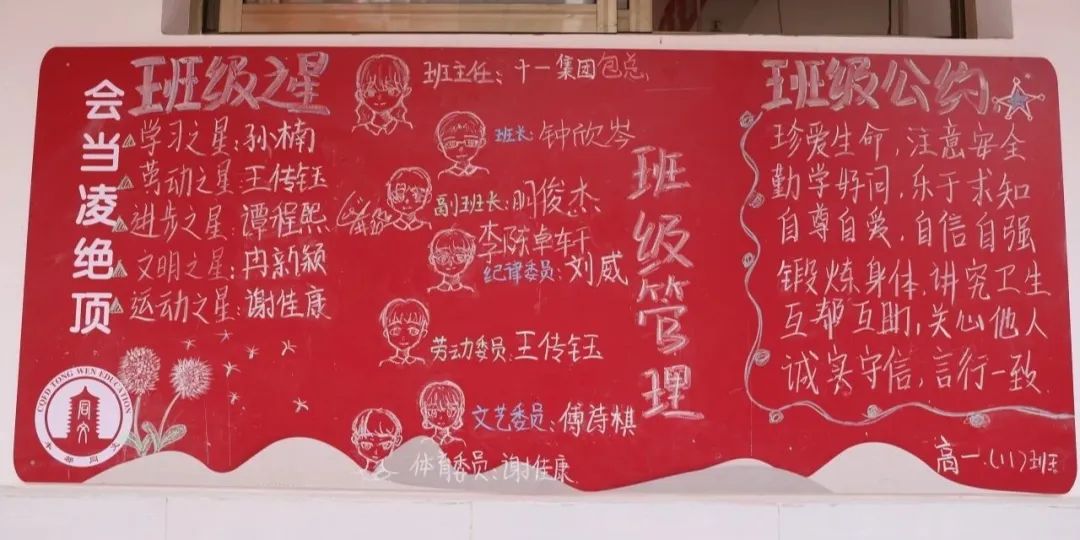 会当凌绝顶
班级之星
学习之星:孙楠
劳动之星:王传钰
进步之星:谭程熙
文明之星:冉新颖
运动之星:谢佳康
COFD TONG WEN EDUCATION
同文
班主任:十一集团包总
班长:钟欣岑
副班长:明俊杰
李陈卓轩
纪律委员:刘威
劳动委员:王传钰
文艺委员:傅诗棋
体育委员:谢佳康
班级管理
班级公约
珍爱生命,注意安全
勤学好问,乐于求知
自尊自爱,自信自强
锻炼身体,讲究卫生
互帮互助,关心他人
诚实守信,言行一致
高一.(11)班